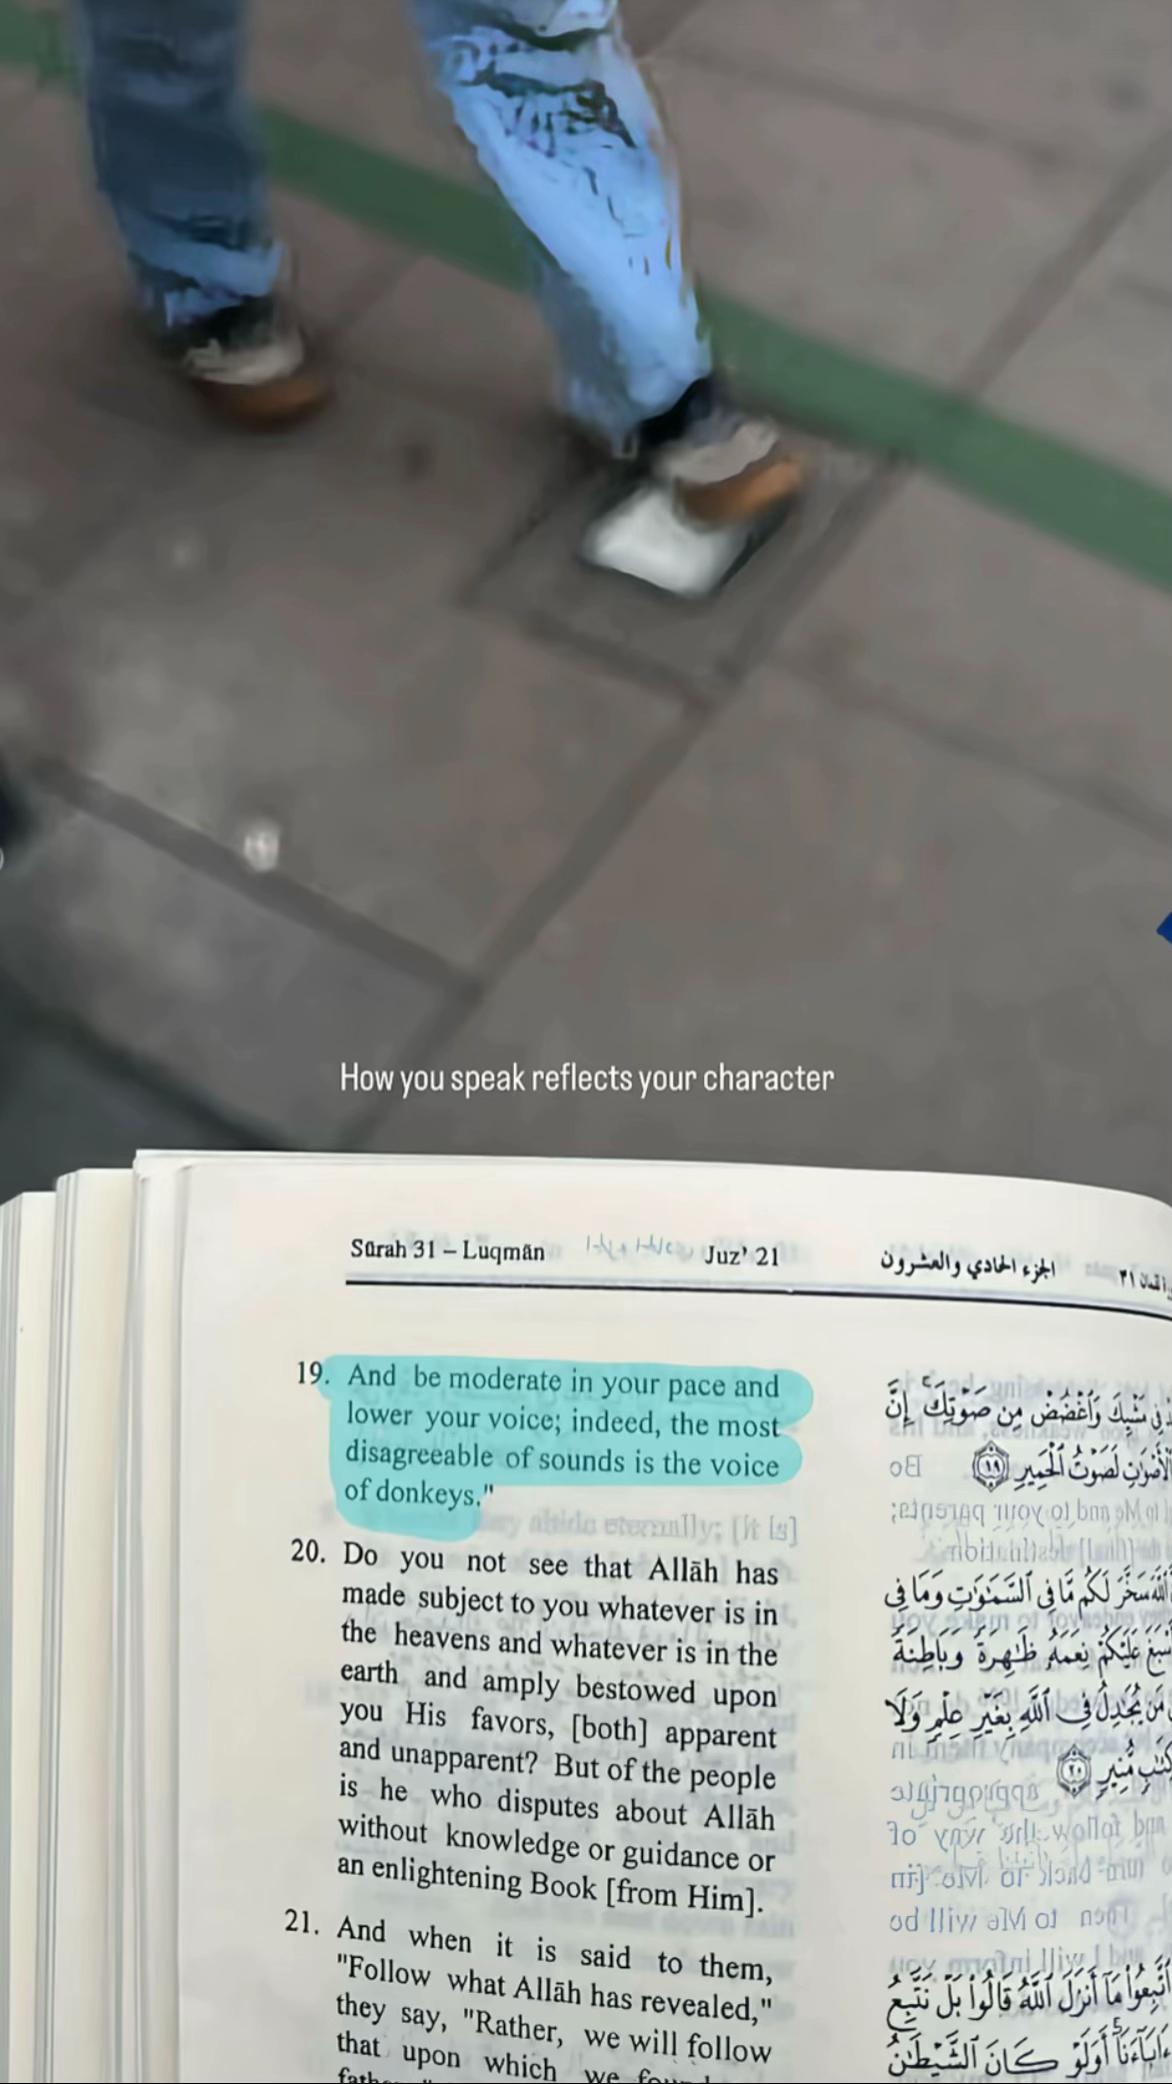 How you speak reflects your character
Sūrah 31 – Luqmān
Juz' 21
الجزء الحادي والعشرون
19. And be moderate in your pace and
lower your voice; indeed, the most
disagreeable of sounds is the voice
of donkeys."
20. Do you not see that Allāh has
made subject to you whatever is in
the heavens and whatever is in the
earth and amply bestowed upon
you His favors, [both] apparent
and unapparent? But of the people
is he who disputes about Allāh
without knowledge or guidance or
an enlightening Book [from Him].
21. And when it is said to them,
"Follow what Allāh has revealed,"
they say, "Rather, we will follow
that upon which we
فِي مَشْيِكَ وَٱغْضُضْ مِن صَوْتِكَ إِنَّ
ٱلْأَصْوَٰتِ لَصَوْتُ ٱلْحَمِيرِ ١٩
ٱللَّهَ سَخَّرَ لَكُم مَّا فِى ٱلسَّمَٰوَٰتِ وَمَا فِى
عَلَيْكُمْ نِعَمَهُۥ ظَٰهِرَةً وَبَاطِنَةً
مَن يُجَٰدِلُ فِى ٱللَّهِ بِغَيْرِ عِلْمٍ وَلَا
كِتَٰبٍ مُّنِيرٍ ٢٠
ٱتَّبِعُوا۟ مَآ أَنزَلَ ٱللَّهُ قَالُوا۟ بَلْ نَتَّبِعُ
ءَابَآءَنَآ أَوَلَوْ كَانَ ٱلشَّيْطَٰنُ